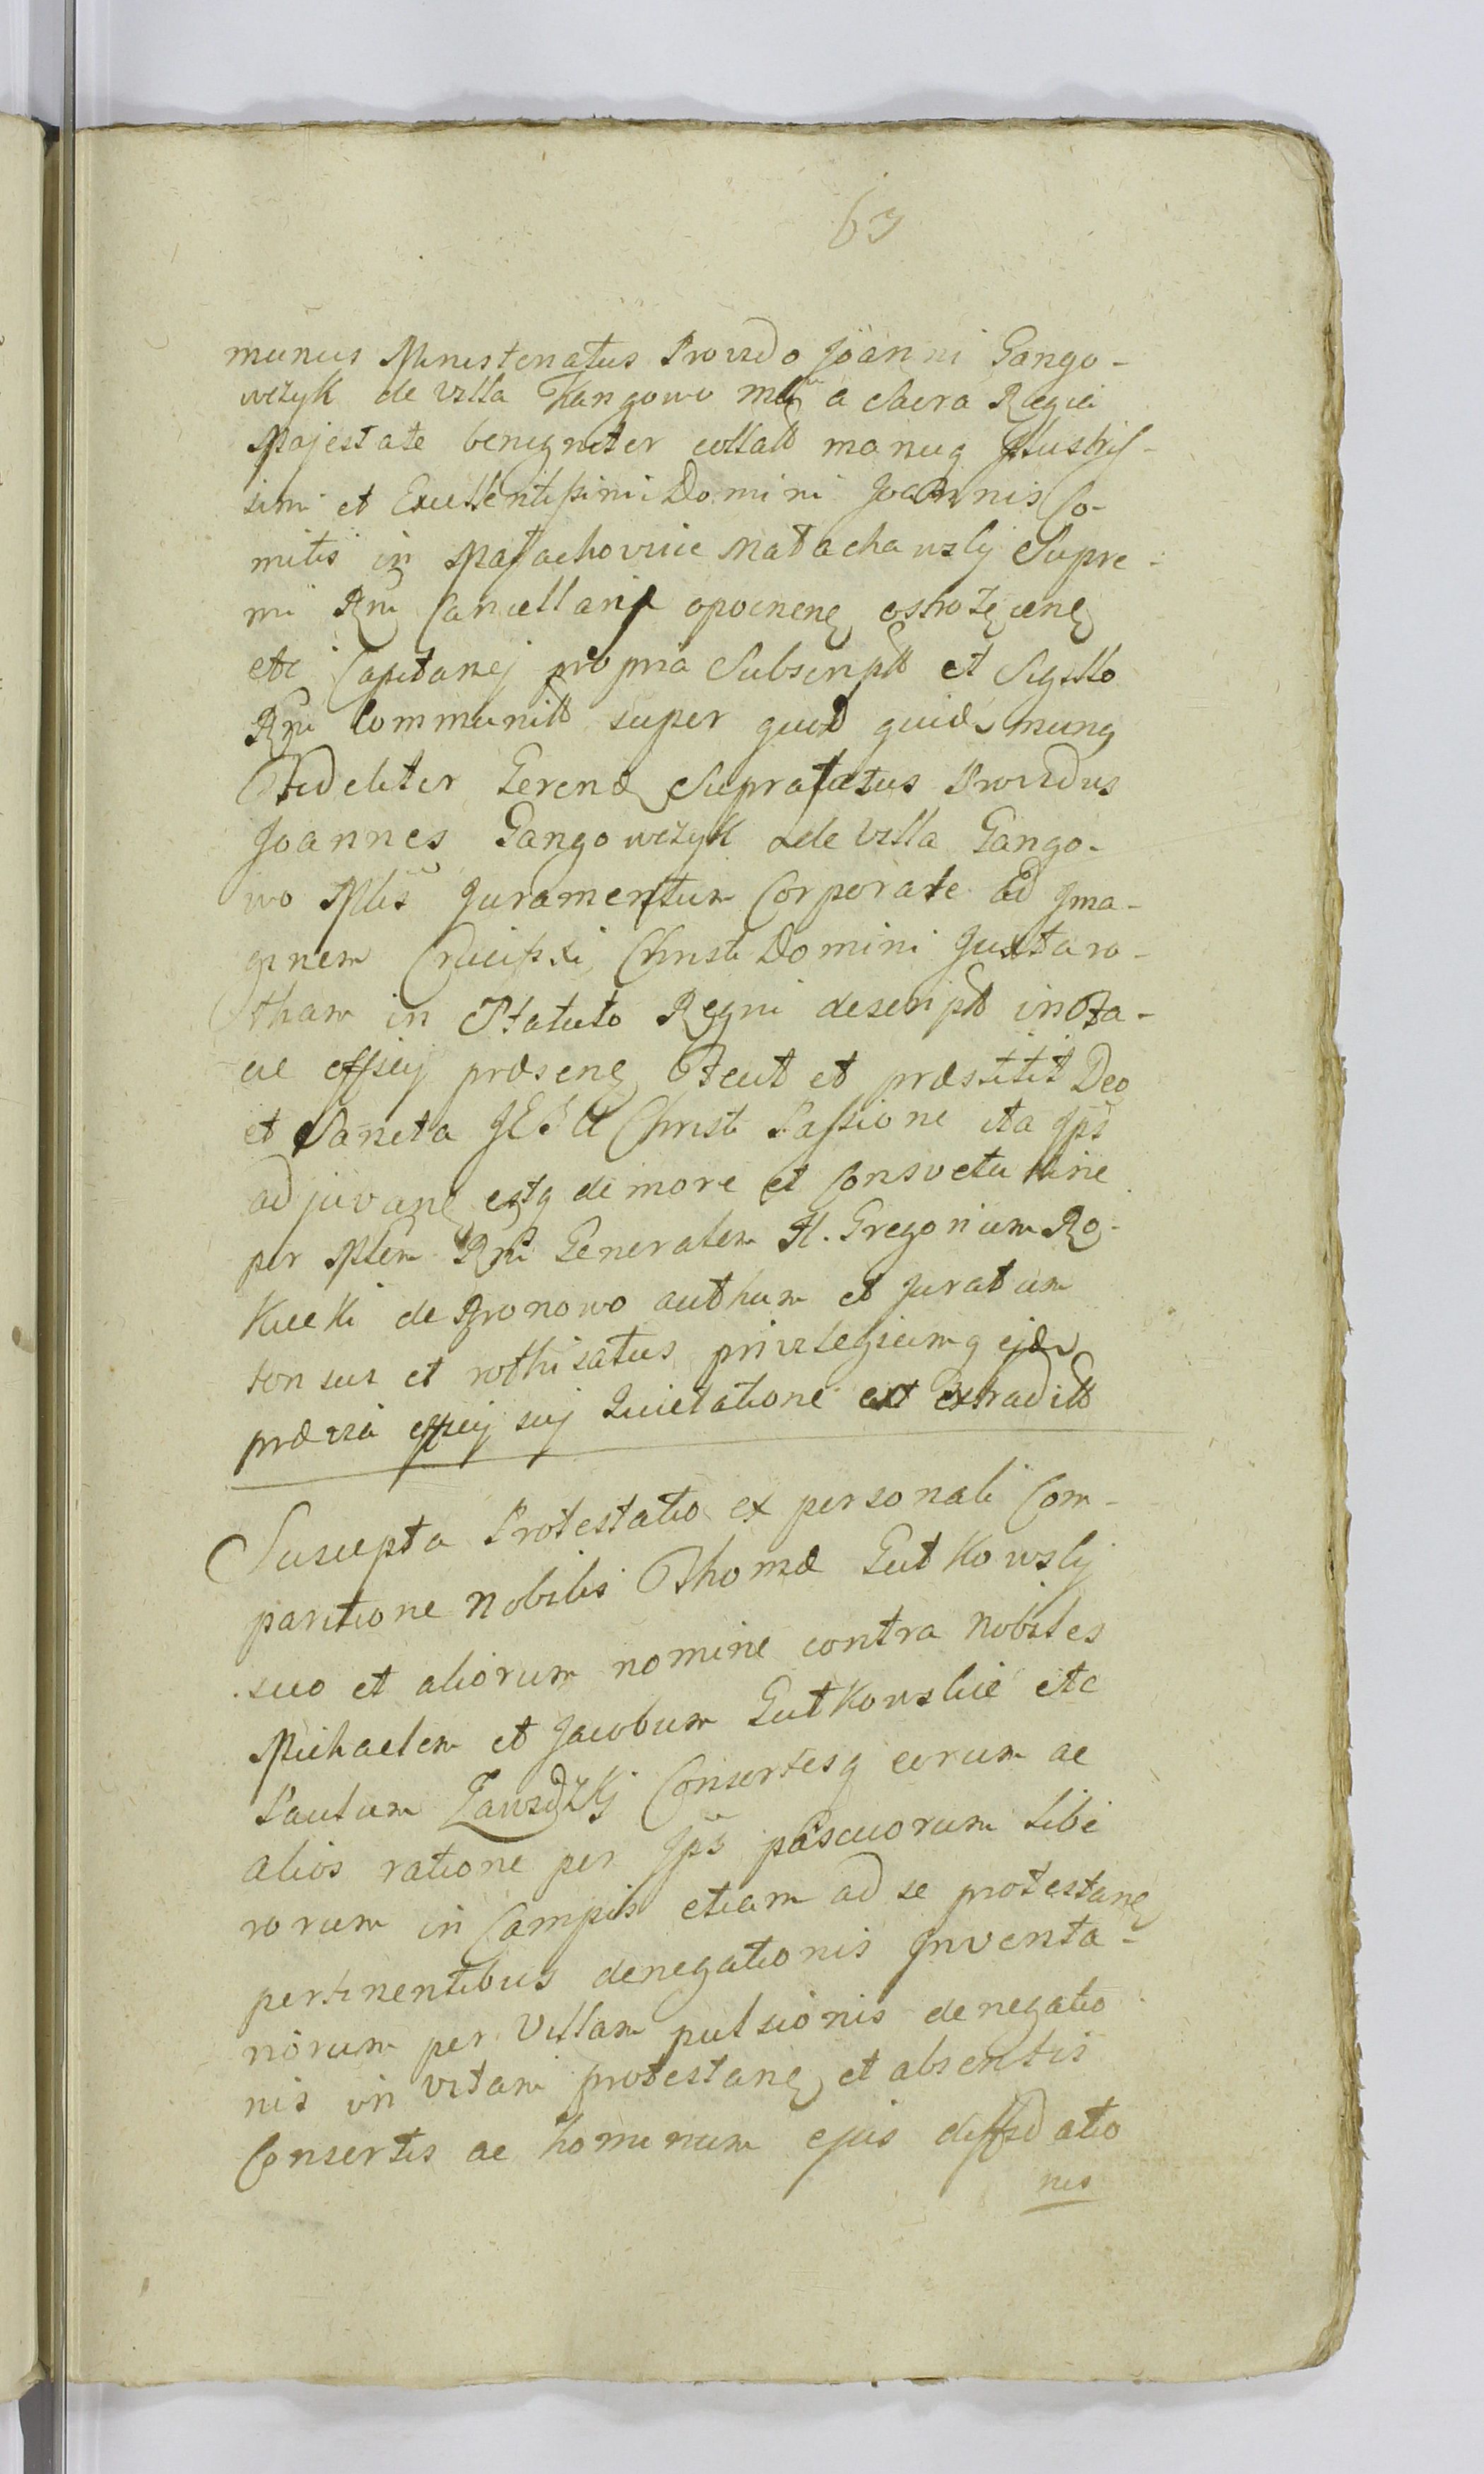 63
munus Ministeriatus Provido Joanni Gango-
wczyk de Villa Kangowo a Sacra Regia
Majestate benigniter collatt manuq Illustris-
simi et Excellentissimi Domini Joannis Co-
mitis in Małachowice Małachowskj Supre-
mi Rni Cancellarij opocnenę ostrołęcenę
etc Capitanej propria Subscriptt et Sigillo
Rni Communitt super quod quidē munq
Fideliter Gerend Suprafatus Providus
Joannes Gangowczyk de Villa Gango-
wo Mlis Juramentum Corporale Ad Ima-
ginem Crucifixi Christi Domini Juxta ro-
tham in Statuto Regni descriptt in Fa-
cie officij præsenę Fecit et præstitit Deo
et Sancta JESU Christi Passione ita Ips
adjuvanę estq de more et Consvetudine
per Mlem Rni Generalem H. Gregorium Ro-
kicki de Gronowo authum et Juratum
tonsus et rothisatus privilegiumq ejde
prævia officij suj Quietatione ext Extraditt
Suscepta Protestatio ex personali Com-
paritione Nobilis Thomæ Gutkowskj
suo et aliorum nomine contra Nobiles
Michaelem et Jacobum Gutkowskie etc
Paulum Zawdzkj Consortesq eorum ac
alios ratione per Ips pascuorum libe
rorum in Campis etiam ad se protestanę
pertinentibus denegationis Inventa-
riorum per Villam pulsionis denegatio
nis in vitam protestanę et absentis
Consortis ac hominum ejus diffidatio
nis